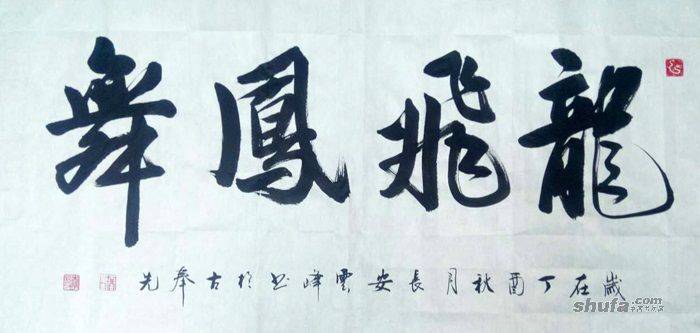 龍飛鳳舞
歲在丁酉秋月長安雲峰书於古奉先
shufa.com